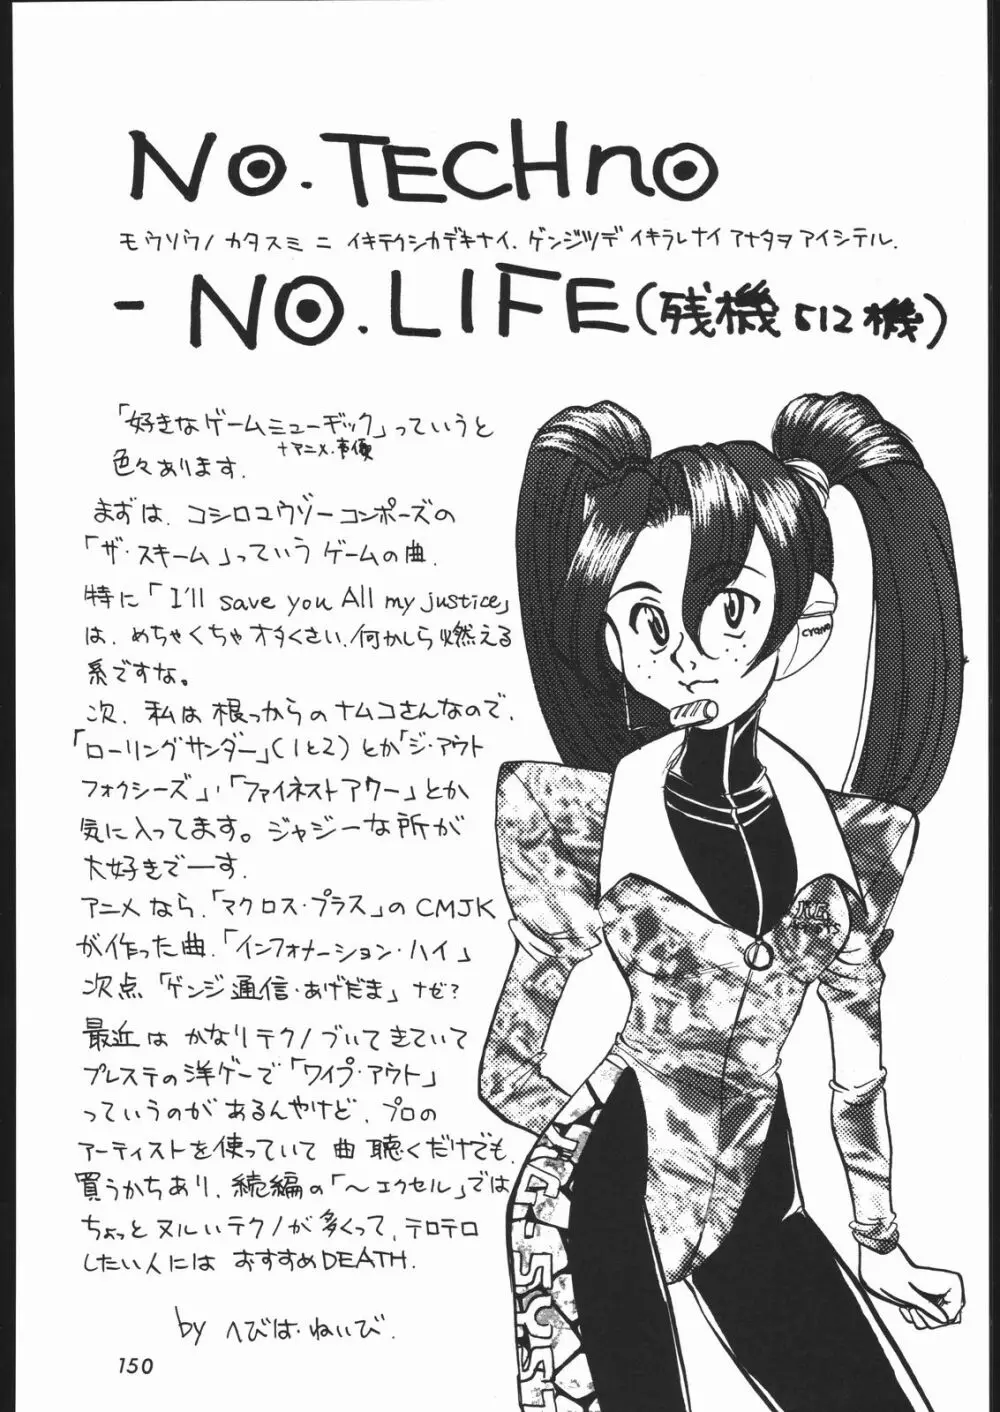 NO.TECHnO
モウソウノ カタスミ ニ イキテクシカデキナイ. ゲンジツデ イキラレナイ アナタヲ アイシテル.
- NO.LIFE(残機512機)
「好きなゲームミュージック」っていうと
+アニメ.声優
色々あります.
まずは、コシロユウゾーコンポーズの
「ザ・スキーム」っていうゲームの曲.
特に「I'll save you All my justice」
は、めちゃくちゃオタくさい、何かしら燃える
系ですな。
次、私は根っからのナムコさんなので、
「ローリングサンダー」(1と2)とか「ジ・アウト
フォクシーズ」・「ファイネストアワー」とか
気に入ってます。ジャジーな所が
大好きでーす.
アニメなら、「マクロス・プラス」のCMJK
が作った曲、「インフォナーション・ハイ」
次点「ゲンジ通信・あげだま」ナゼ?
最近はかなりテクノづいてきていて
プレステの洋ゲーで「ワイプ・アウト」
っていうのがあるんやけど、プロの
アーティストを使っていて曲聴くだけでも、
買うかちあり、続編の「〜エクセル」では
ちょっとヌルいテクノが多くって、テロテロ
したい人にはおすすめDEATH.
by へびは・ねいび.
150